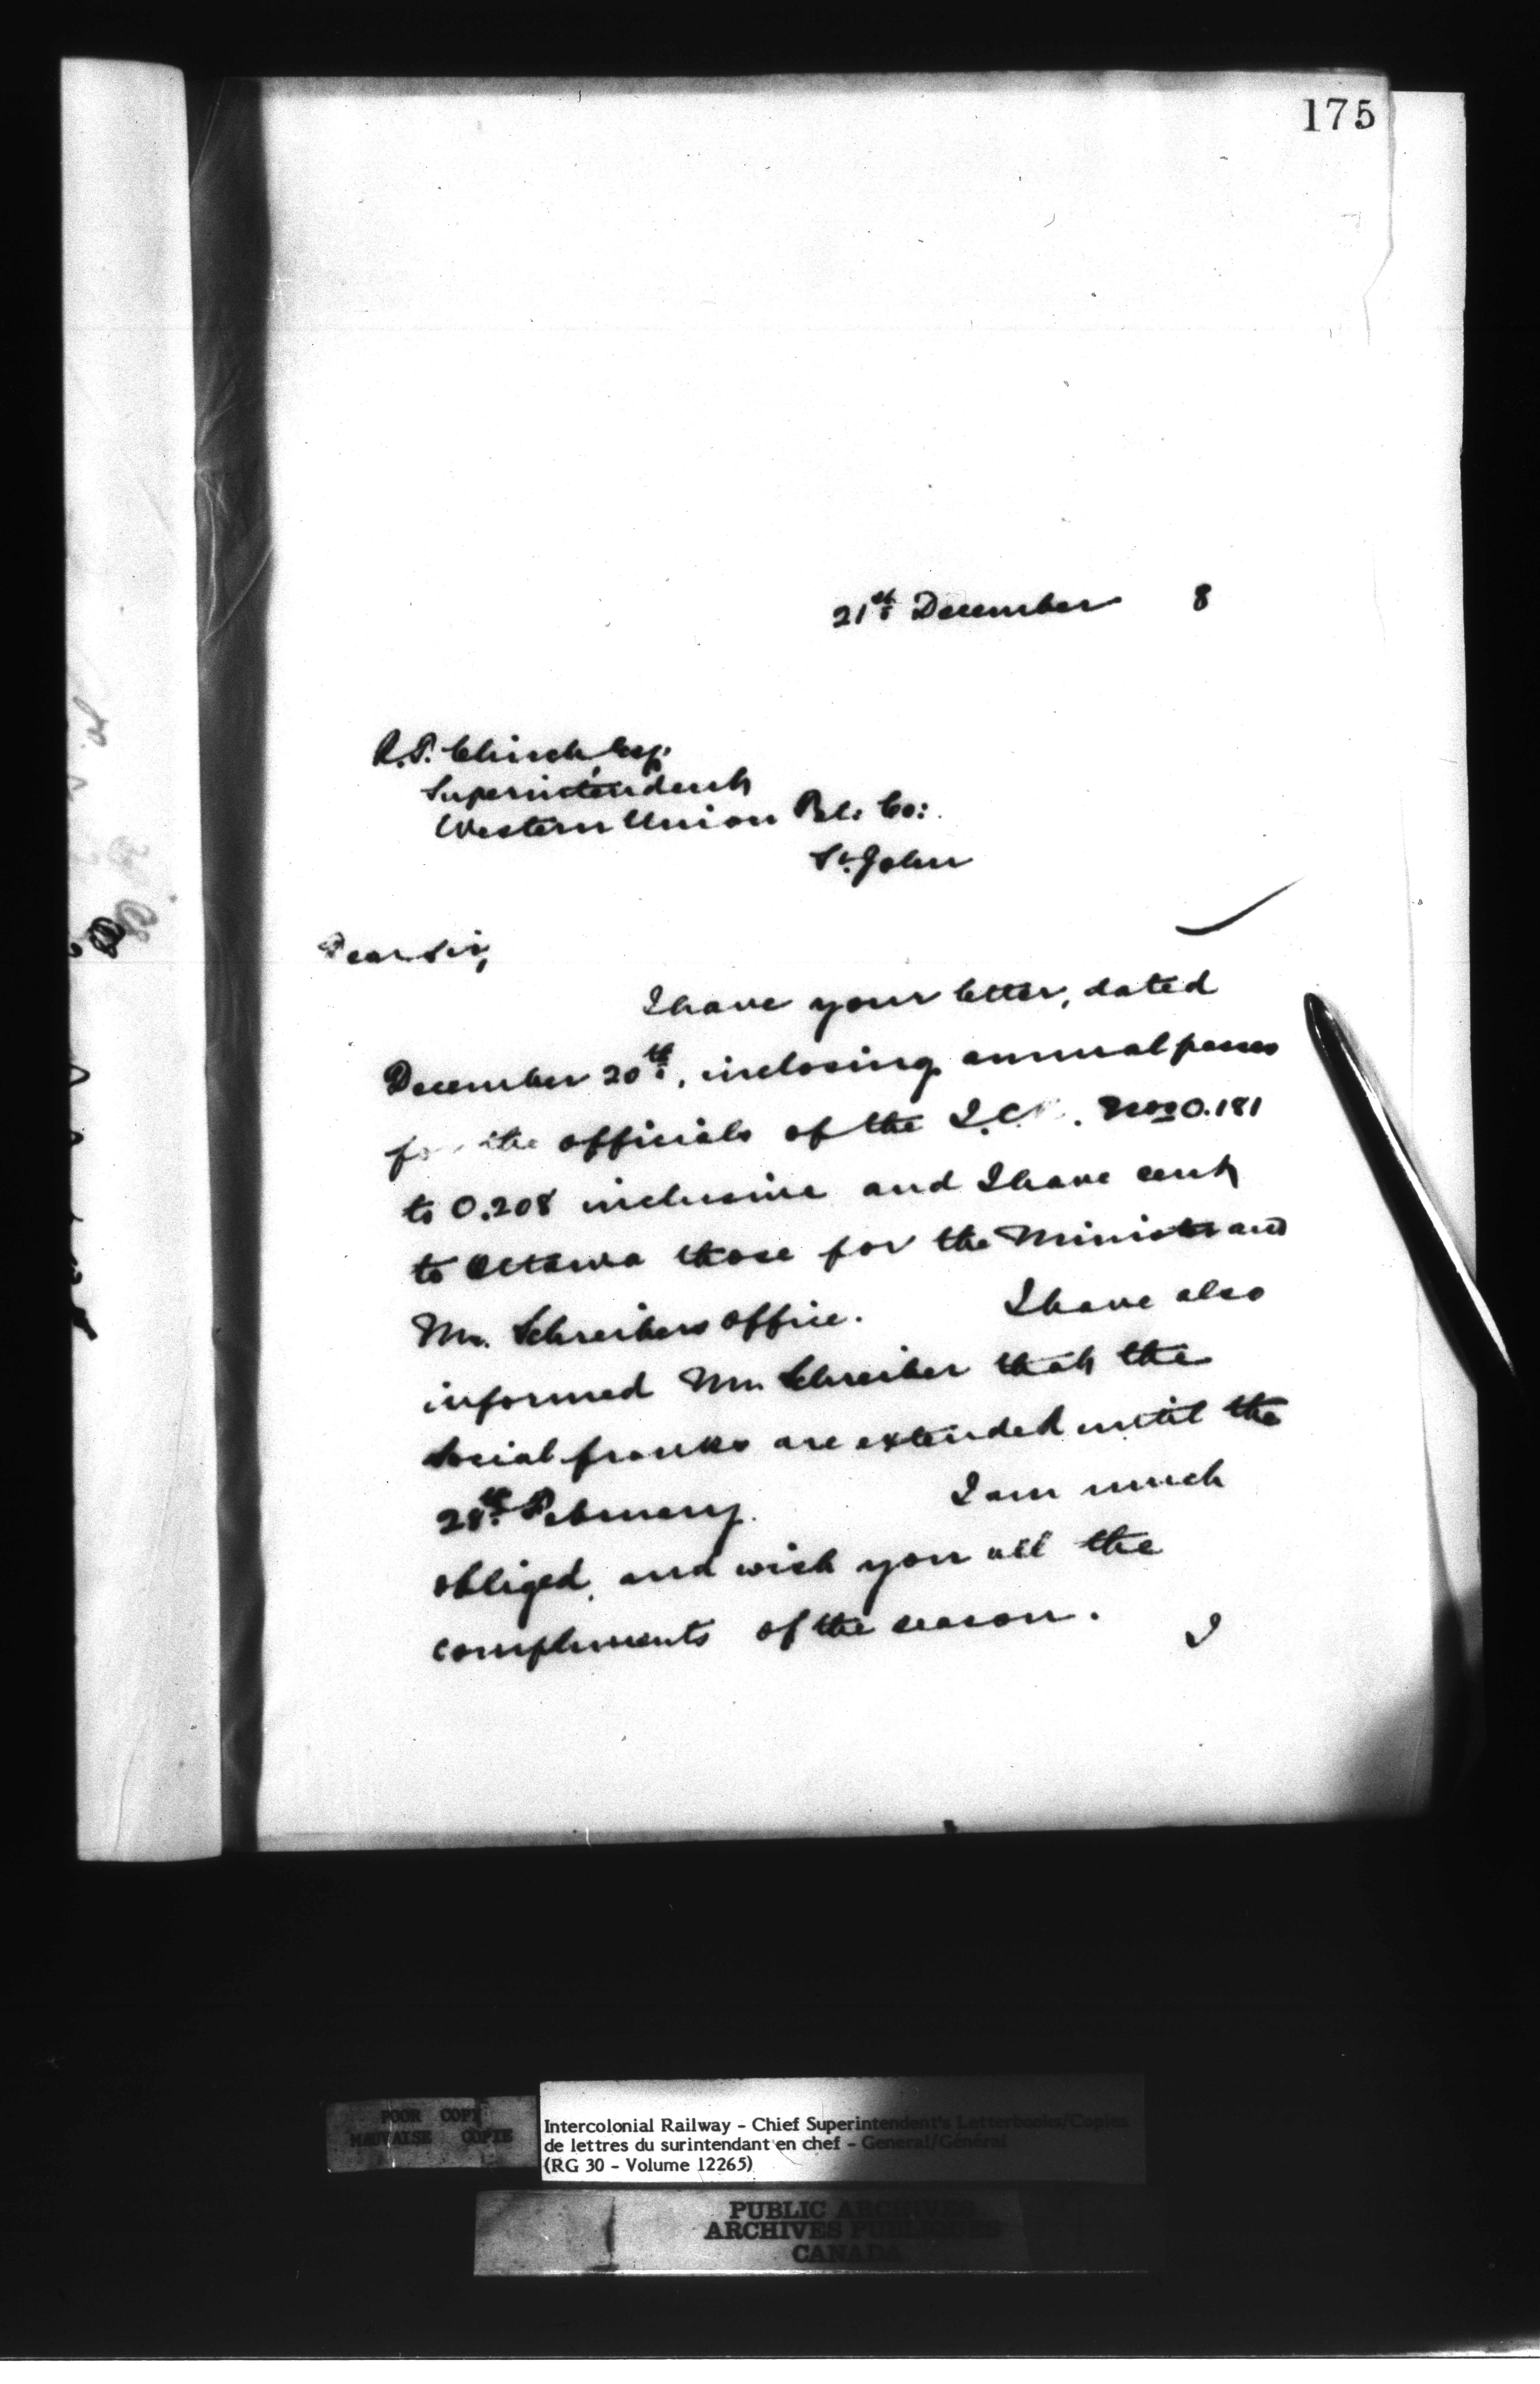 175
21st December 8
R.T. Clinch, Esq.
Superintendent
Western Union Tel: Co:
St. John
Dear Sir,
I have your letter, dated
December 20th, inclosing annual passes
for the officials of the I.C. Nos 0.181
to 0.208 inclusive and I have sent
to Ottawa those for the Minister and
Mr. Schreibers office. I have also
informed Mr. Schreiber that the
social franks are extended until the
28th February. I am much
obliged, and wish you all the
compliments of the season. I
POOR COPY
MAUVAISE COPIE
Intercolonial Railway - Chief Superintendent's Letterbooks/Copies
de lettres du surintendant en chef - General/Général
(RG 30 - Volume 12265)
PUBLIC ARCHIVES
ARCHIVES PUBLIQUES
CANADA